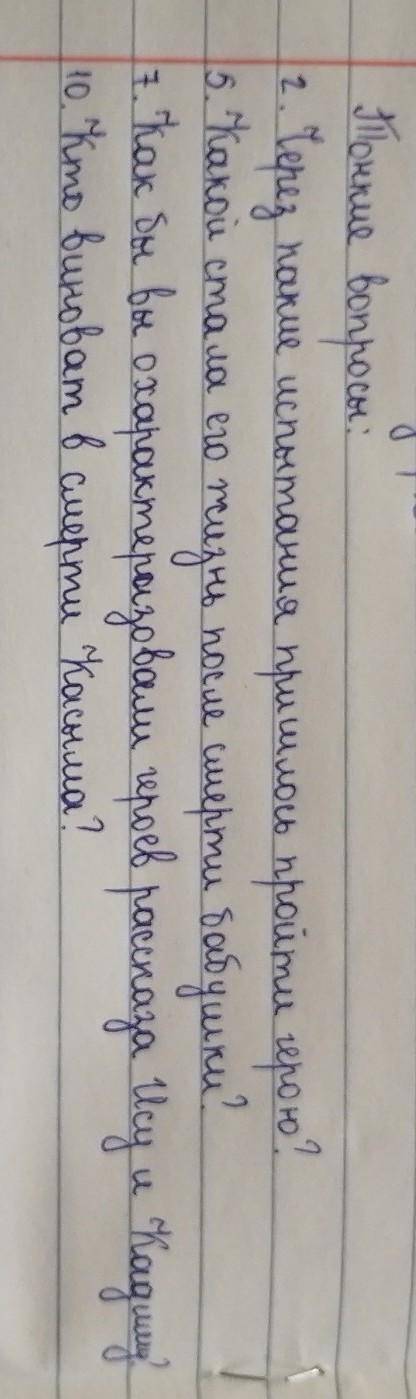 Тонкие вопросы:
2. Через какие испытания пришлось пройти герою?
5. Какой стала его жизнь после смерти бабушки?
7. Как бы вы охарактеразовали героев рассказа Ису и Кадишу?
10. Кто виноват в смерти Касыма?